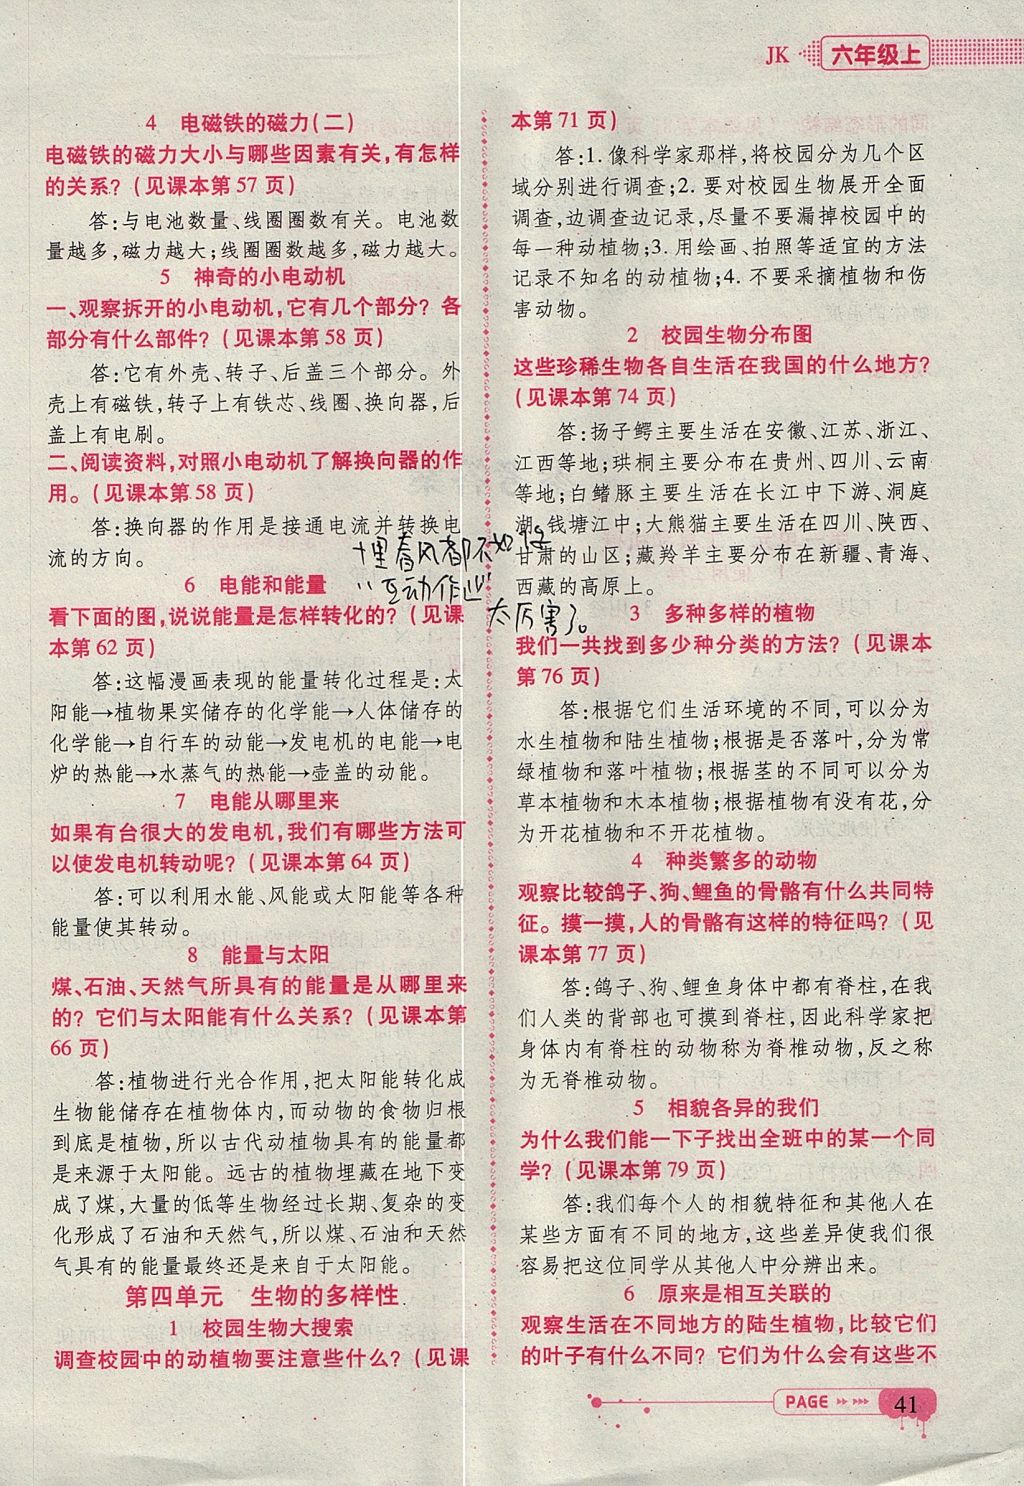 JK 六年级上
4 电磁铁的磁力(二)
电磁铁的磁力大小与哪些因素有关,有怎样
的关系?(见课本第57页)
答:与电池数量、线圈圈数有关。电池数
量越多,磁力越大;线圈圈数越多,磁力越大。
5 神奇的小电动机
一、观察拆开的小电动机,它有几个部分? 各
部分有什么部件?(见课本第58页)
答:它有外壳、转子、后盖三个部分。外
壳上有磁铁,转子上有铁芯、线圈、换向器,后
盖上有电刷。
二、阅读资料,对照小电动机了解换向器的作
用。(见课本第58页)
答:换向器的作用是接通电流并转换电
流的方向。
6 电能和能量
看下面的图,说说能量是怎样转化的?(见课
本第62页)
答:这幅漫画表现的能量转化过程是:太
阳能→植物果实储存的化学能→人体储存的
化学能→自行车的动能→发电机的电能→电
炉的热能→水蒸气的热能→壶盖的动能。
7 电能从哪里来
如果有台很大的发电机,我们有哪些方法可
以使发电机转动呢?(见课本第64页)
答:可以利用水能、风能或太阳能等各种
能量使其转动。
8 能量与太阳
煤、石油、天然气所具有的能量是从哪里来
的? 它们与太阳能有什么关系?(见课本第
66页)
答:植物进行光合作用,把太阳能转化成
生物能储存在植物体内,而动物的食物归根
到底是植物,所以古代动植物具有的能量都
是来源于太阳能。远古的植物埋藏在地下变
成了煤,大量的低等生物经过长期、复杂的变
化形成了石油和天然气,所以煤、石油和天然
气具有的能量最终还是来自于太阳能。
第四单元 生物的多样性
1 校园生物大搜索
调查校园中的动植物要注意些什么?(见课
本第71页)
答:1.像科学家那样,将校园分为几个区
域分别进行调查;2.要对校园生物展开全面
调查,边调查边记录,尽量不要漏掉校园中的
每一种动植物;3.用绘画、拍照等适宜的方法
记录不知名的动植物;4.不要采摘植物和伤
害动物。
2 校园生物分布图
这些珍稀生物各自生活在我国的什么地方?
(见课本第74页)
答:扬子鳄主要生活在安徽、江苏、浙江、
江西等地;珙桐主要分布在贵州、四川、云南
等地;白鳍豚主要生活在长江中下游、洞庭
湖、钱塘江中;大熊猫主要生活在四川、陕西、
甘肃的山区;藏羚羊主要分布在新疆、青海、
西藏的高原上。
3 多种多样的植物
我们一共找到多少种分类的方法?(见课本
第76页)
答:根据它们生活环境的不同,可以分为
水生植物和陆生植物;根据是否落叶,分为常
绿植物和落叶植物;根据茎的不同可以分为
草本植物和木本植物;根据植物有没有花,分
为开花植物和不开花植物。
4 种类繁多的动物
观察比较鸽子、狗、鲤鱼的骨骼有什么共同特
征。摸一摸,人的骨骼有这样的特征吗?(见
课本第77页)
答:鸽子、狗、鲤鱼身体中都有脊柱,在我
们人类的背部也可摸到脊柱,因此科学家把
身体内有脊柱的动物称为脊椎动物,反之称
为无脊椎动物。
5 相貌各异的我们
为什么我们能一下子找出全班中的某一个同
学?(见课本第79页)
答:我们每个人的相貌特征和其他人在
某些方面有不同的地方,这些差异使我们很
容易把这位同学从其他人中分辨出来。
6 原来是相互关联的
观察生活在不同地方的陆生植物,比较它们
的叶子有什么不同? 它们为什么会有这些不
看风都不如
“互动作业”
太厉害了。
PAGE 41